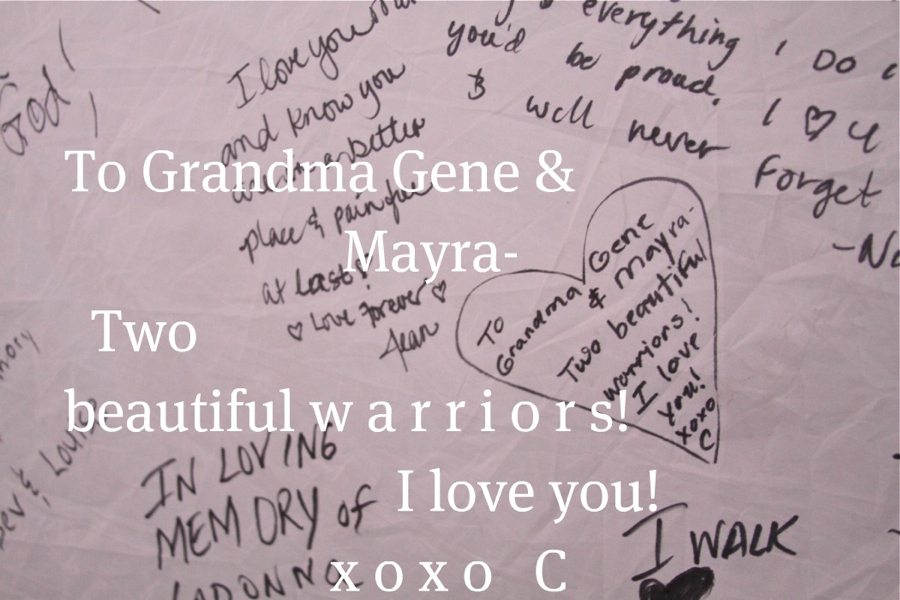 God!
I love you
and know you
are in a better
place & pain free
at last!
♡ Love Forever ♡
Jean
everything I DO
you'd be proud.
& will never
I ♡ U
Forget
To Grandma Gene &
Mayra-
Two
beautiful w a r r i o r s!
I love you!
x o x o C
TO
Grandma Gene
& Mayra-
Two beautiful
warriors!
I love
you!
xoxo
C
IN LOVING
MEMORY of
LADONNA
I WALK